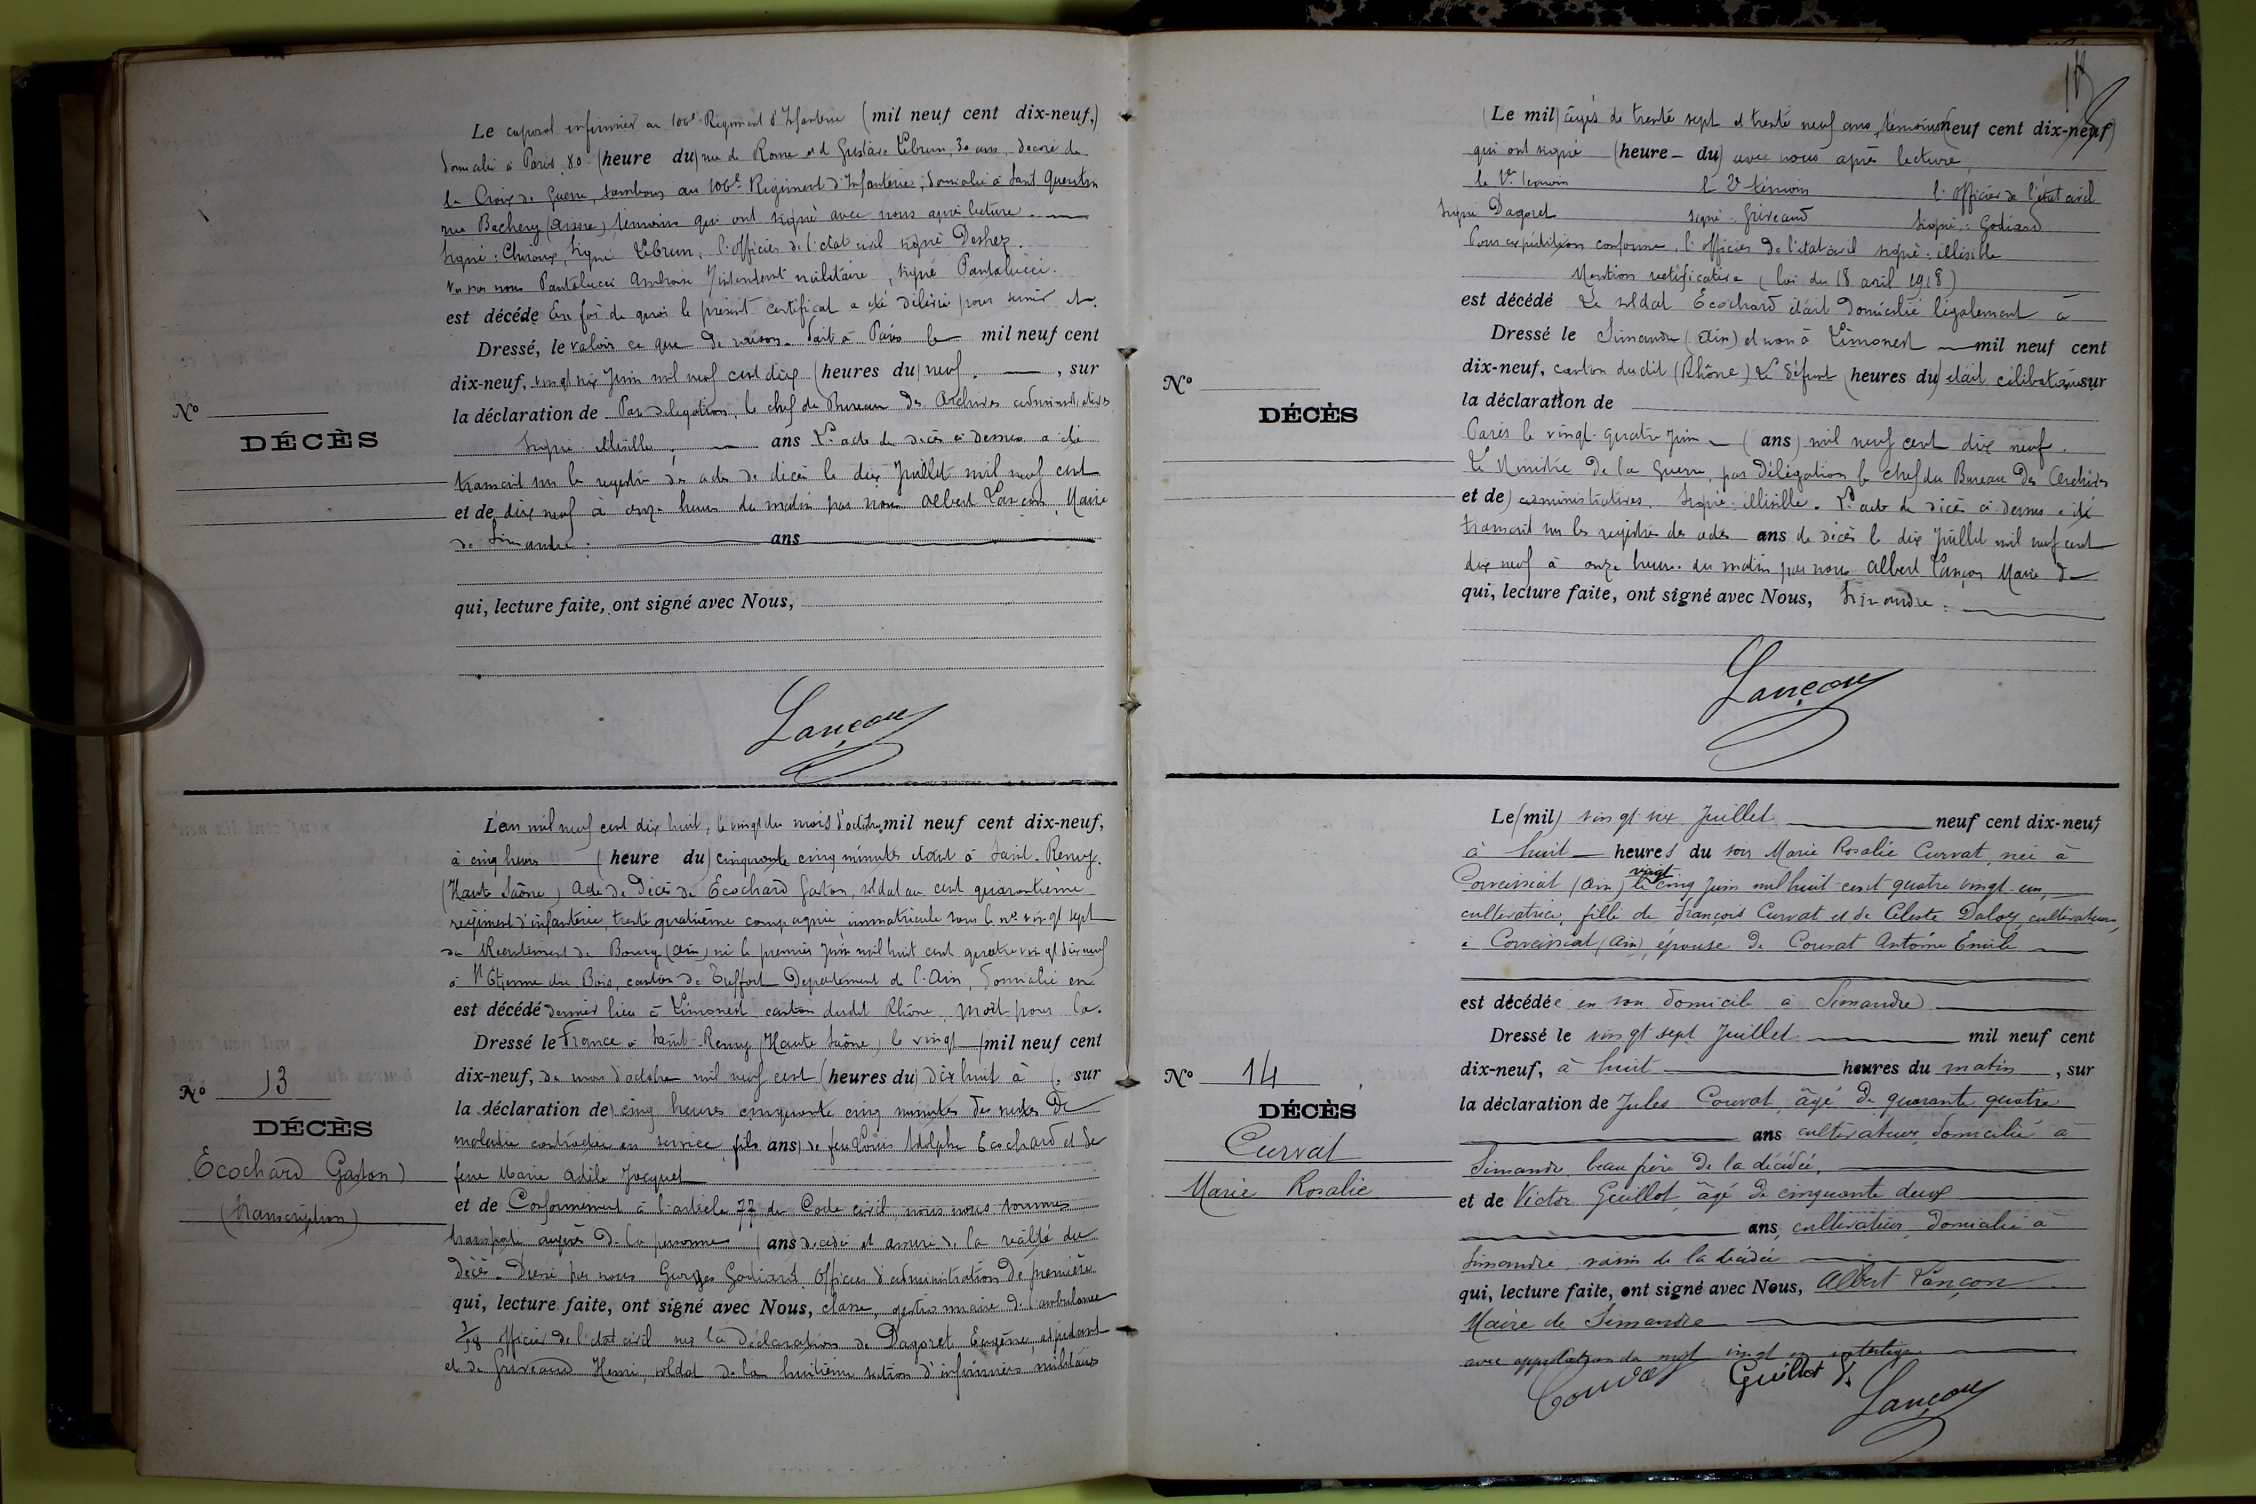 Le caporal infirmier au 106e Régiment d'Infanterie (mil neuf cent dix-neuf,)
domicilié à Paris, 80 (heure du) rue de Rome et d Gustave Lebrun, 30 ans, décoré de
la Croix de Guerre, tambour au 106e Régiment d'Infanterie, domicilié à Saint Quentin
rue Bachery (Aisne) témoins qui ont signé avec nous après lecture.
Signé : Chiroux, signé Lebrun, l'officier de l'état civil signé Deshez.
Vu par nous Pantalucci Ambroise Intendant militaire, signé Pantalucci.
est décédé En foi de quoi le présent certificat a été délivré pour servir et
Dressé, le valoir ce que de raison. Fait à Paris le mil neuf cent
dix-neuf, vingt six Juin mil neuf cent dix (heures du) neuf. , sur
la déclaration de Par délégation, le chef du Bureau des Archives administratives
Signé illisible, ans L'acte de décès ci dessus a été
transcrit sur le registre des actes de décès le dix Juillet mil neuf cent
et de dix neuf à onze heures du matin par nous Albert Lançon, Maire
de Simandre. ans
qui, lecture faite, ont signé avec Nous,
Nº
DÉCÈS
Lançon
L'an mil neuf cent dix huit, le vingt du mois d'octobre, mil neuf cent dix-neuf,
à cinq heures (heure du) cinquante cinq minutes étant à Saint-Remy.
(Haute Saône) Acte de Décès de Ecochard Gaston, soldat au cent quarantième
régiment d'infanterie, trente quatrième compagnie, immatriculé sous le no vingt sept
du Recrutement de Bourg (Ain) né le premier Juin mil huit cent quatre vingt dix neuf
à St Etienne du Bois, canton de Treffort Département de l'Ain, domicilié en
est décédé dernier lieu à Limonest canton dudit Rhône, Mort pour la
Dressé le France à Saint-Remy (Haute Saône) le vingt (mil neuf cent
dix-neuf, du mois d'octobre mil neuf cent (heures du) dix huit à (, sur
la déclaration de) cinq heures cinquante cinq minutes des suites de
maladie contractée en service, fils ans) de feu Louis Adolphe Ecochard et de
feue Marie Adèle Jacquet
et de Conformément à l'article 77 du Code civil, nous nous sommes
transporté auprès de la personne (ans) décédée et assuré de la réalité du
décès. Dressé par nous Georges Godiard Officier d'administration de première
qui, lecture faite, ont signé avec Nous, classe, gestionnaire de l'ambulance
3/58 officier de l'état civil sur la déclaration de Dagoret Eugène, adjudant
et de Griveaud Henri, soldat de la huitième section d'infirmiers militaires
Nº 13
DÉCÈS
Ecochard Gaston
(transcription)
(Le mil) âgés de trente sept et trente neuf ans, témoins neuf cent dix-neuf)
qui ont signé (heure - du) avec nous après lecture
le 1er témoin l 2e témoin l'officier de l'état civil
Signé Dagoret signé Griveaud signé : Godiard
Pour expédition conforme, l'officier de l'état civil signé : illisible
Mention rectificative (loi du 18 avril 1918)
est décédé Le soldat Ecochard était domicilié légalement à
Dressé le Simandre (Ain) et non à Limonest mil neuf cent
dix-neuf, canton dudit (Rhône) Le défunt (heures du) était célibataire sur
la déclaration de
Paris le vingt-quatre Juin (ans) mil neuf cent dix neuf.
Le Ministre de la Guerre, par délégation le chef du Bureau des Archives
et de) administratives. Signé illisible. L'acte de décès ci dessus a été
transcrit sur les registres des actes ans de décès le dix Juillet mil neuf cent
dix neuf à onze heures du matin par nous Albert Lançon Maire de
qui, lecture faite, ont signé avec Nous, Simandre.
Nº
DÉCÈS
Lançon
Le (mil) vingt six Juillet neuf cent dix-neuf
à huit heures du soir Marie Rosalie Curvat, née à
vingt
Corveissiat (Ain) le cinq Juin mil huit cent quatre vingt un,
cultivatrice, fille de François Curvat et de Céleste Daloz, cultivateurs,
à Corveissiat (Ain), épouse de Couvat Antoine Emile
est décédée en son domicile à Simandre
Dressé le vingt sept Juillet mil neuf cent
dix-neuf, à huit heures du matin , sur
la déclaration de Jules Couvat, âgé de quarante quatre
ans cultivateur, domicilié à
Simandre, beau frère de la décédée,
et de Victor Guillot, âgé de cinquante deux
ans, cultivateur, domicilié à
Simandre, voisin de la décédée
qui, lecture faite, ont signé avec Nous, Albert Lançon
Maire de Simandre
avec approbation du mot vingt en interligne
Couvat Guillot V. Lançon
Nº 14
DÉCÈS
Curvat
Marie Rosalie